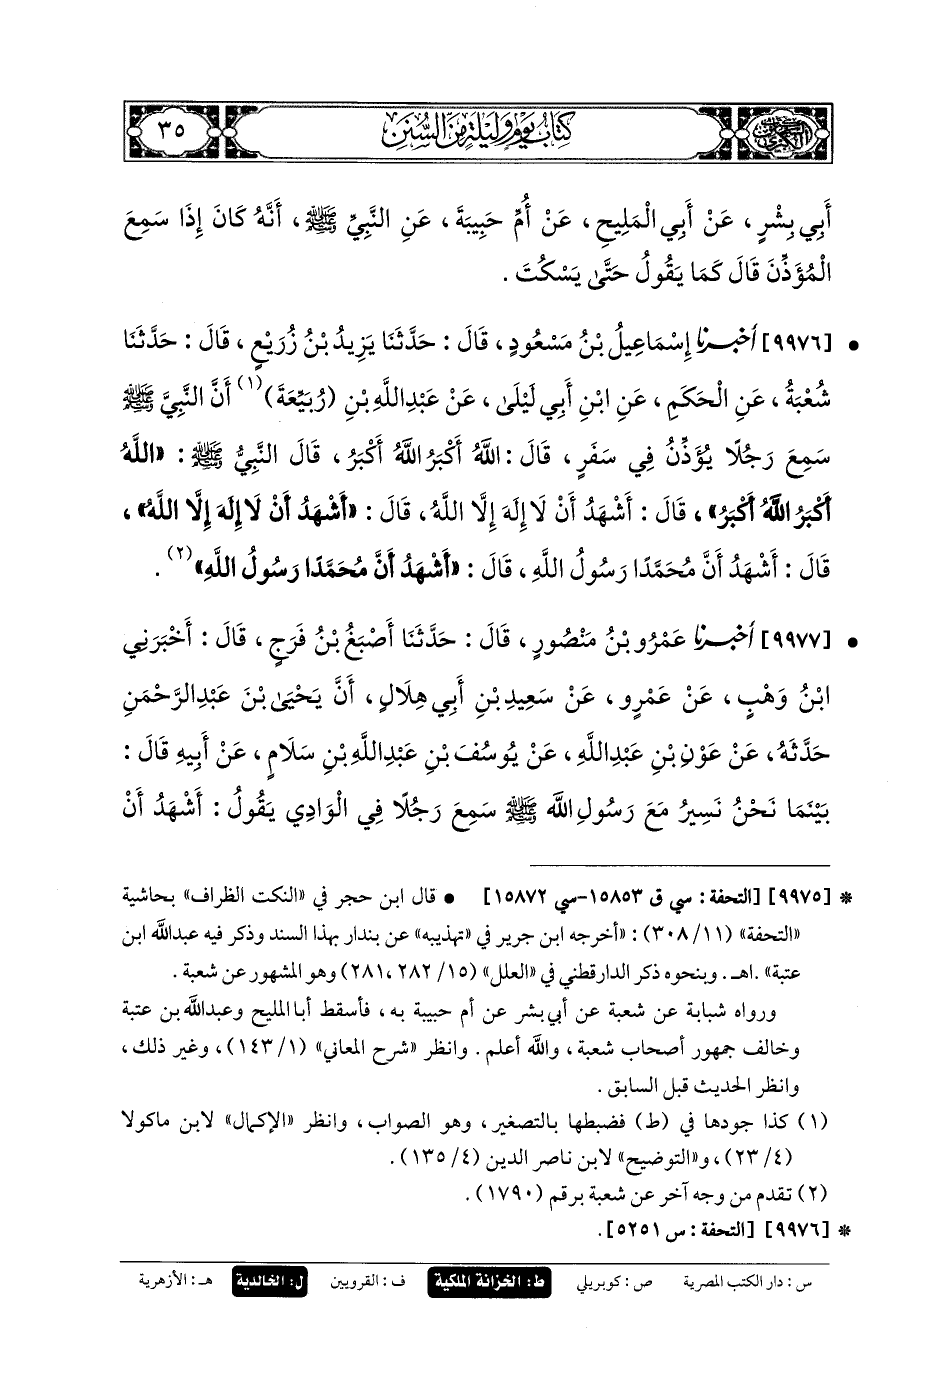 كتاب يوم وليلة من السنن
٣٥
أَبِي بِشْرٍ، عَنْ أَبِي الْمَلِيحِ، عَنْ أُمِّ حَبِيبَةَ، عَنِ النَّبِيِّ ﷺ، أَنَّهُ كَانَ إِذَا سَمِعَ
الْمُؤَذِّنَ قَالَ كَمَا يَقُولُ حَتَّىٰ يَسْكُتَ.
• [٩٩٧٦] أخبرنا إِسْمَاعِيلُ بْنُ مَسْعُودٍ، قَالَ: حَدَّثَنَا يَزِيدُ بْنُ زُرَيْعٍ، قَالَ: حَدَّثَنَا
شُعْبَةُ، عَنِ الْحَكَمِ، عَنِ ابْنِ أَبِي لَيْلَىٰ، عَنْ عَبْدِاللَّهِ بْنِ (رُبَيِّعَةَ)(١) أَنَّ النَّبِيَّ ﷺ
سَمِعَ رَجُلًا يُؤَذِّنُ فِي سَفَرٍ، قَالَ: اللَّهُ أَكْبَرُ اللَّهُ أَكْبَرُ، قَالَ النَّبِيُّ ﷺ: «اللَّهُ
أَكْبَرُ اللَّهُ أَكْبَرُ»، قَالَ: أَشْهَدُ أَنْ لَا إِلَهَ إِلَّا اللَّهُ، قَالَ: «أَشْهَدُ أَنْ لَا إِلَهَ إِلَّا اللَّهُ»،
قَالَ: أَشْهَدُ أَنَّ مُحَمَّدًا رَسُولُ اللَّهِ، قَالَ: «أَشْهَدُ أَنَّ مُحَمَّدًا رَسُولُ اللَّهِ»(٢).
• [٩٩٧٧] أخبرنا عَمْرُو بْنُ مَنْصُورٍ، قَالَ: حَدَّثَنَا أَصْبَغُ بْنُ فَرَجٍ، قَالَ: أَخْبَرَنِي
ابْنُ وَهْبٍ، عَنْ عَمْرٍو، عَنْ سَعِيدِ بْنِ أَبِي هِلَالٍ، أَنَّ يَحْيَىٰ بْنَ عَبْدِالرَّحْمَنِ
حَدَّثَهُ، عَنْ عَوْنِ بْنِ عَبْدِاللَّهِ، عَنْ يُوسُفَ بْنِ عَبْدِاللَّهِ بْنِ سَلَامٍ، عَنْ أَبِيهِ قَالَ:
بَيْنَمَا نَحْنُ نَسِيرُ مَعَ رَسُولِ اللَّهِ ﷺ سَمِعَ رَجُلًا فِي الْوَادِي يَقُولُ: أَشْهَدُ أَنْ
* [٩٩٧٥] [التحفة: سي ق ١٥٨٥٣-سي ١٥٨٧٢] • قال ابن حجر في «النكت الظراف» بحاشية
«التحفة» (١١/ ٣٠٨): «أخرجه ابن جرير في «تهذيبه» عن بندار بهذا السند وذكر فيه عبدالله ابن
عتبة». اهـ. وبنحوه ذكر الدارقطني في «العلل» (١٥/ ٢٨٢، ٢٨١) وهو المشهور عن شعبة.
ورواه شبابة عن شعبة عن أبي بشر عن أم حبيبة به، فأسقط أبا المليح وعبدالله بن عتبة
وخالف جمهور أصحاب شعبة، والله أعلم. وانظر «شرح المعاني» (١/ ١٤٣)، وغير ذلك،
وانظر الحديث قبل السابق.
(١) كذا جودها في (ط) فضبطها بالتصغير، وهو الصواب، وانظر «الإكمال» لابن ماكولا
(٤/ ٢٣)، و«التوضيح» لابن ناصر الدين (٤/ ١٣٥).
(٢) تقدم من وجه آخر عن شعبة برقم (١٧٩٠).
* [٩٩٧٦] [التحفة: س ٥٢٥١].
س: دار الكتب المصرية ص: كوبريلي ط: الخزانة الملكية ف: القرويين ل: الخالدية هـ: الأزهرية